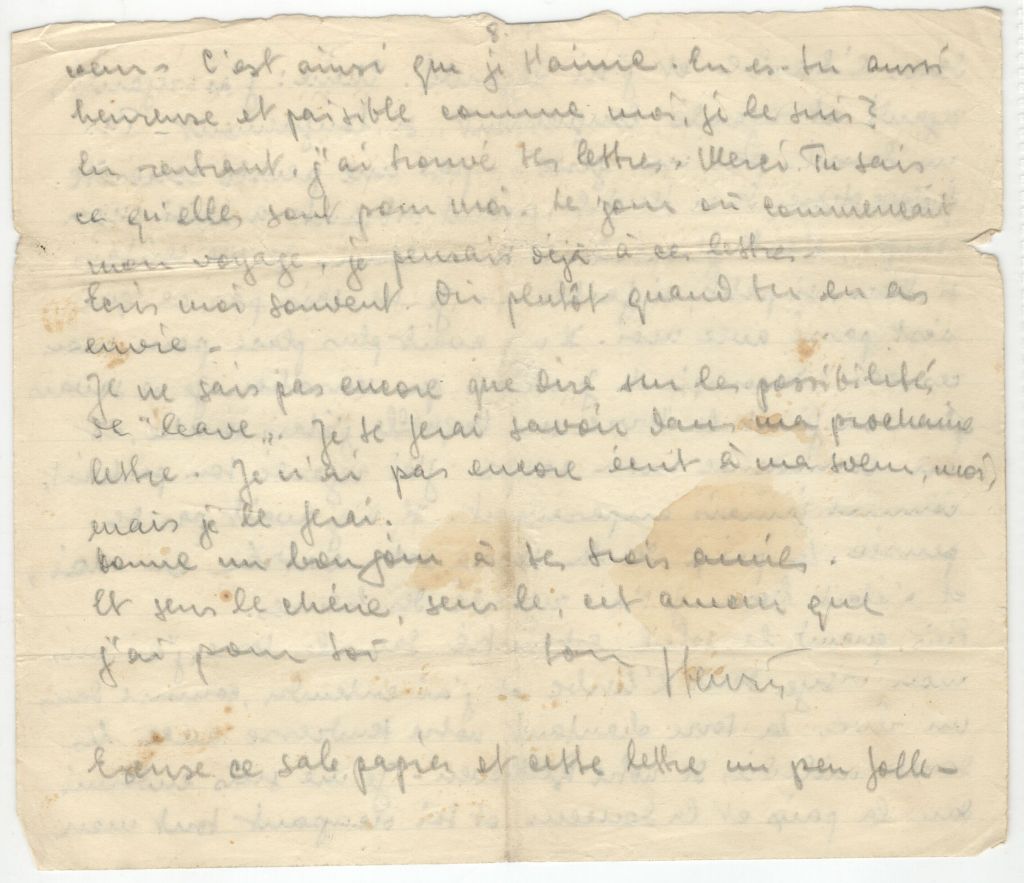 8.
C'est ainsi que je t'aime. En es-tu aussi
heureuse et paisible comme moi, je le suis?
En rentrant, j'ai trouvé tes lettres. Merci. Tu sais
ce qu'elles sont pour moi. Le jour où commençait
mon voyage, je pensais déjà à ces lettres.
Ecris moi souvent. Ou plutôt quand tu en as
envie.
Je ne sais pas encore que dire sur les possibilités
de "leave". Je te ferai savoir dans ma prochaine
lettre. Je n'ai pas encore écrit à ma soeur, moi,
mais je le ferai.
Donne un bonjour à tes trois amies.
Et sens le chérie, sens le, cet amour que
j'ai pour toi ton Henry
Excuse ce sale papier et cette lettre un peu folle-